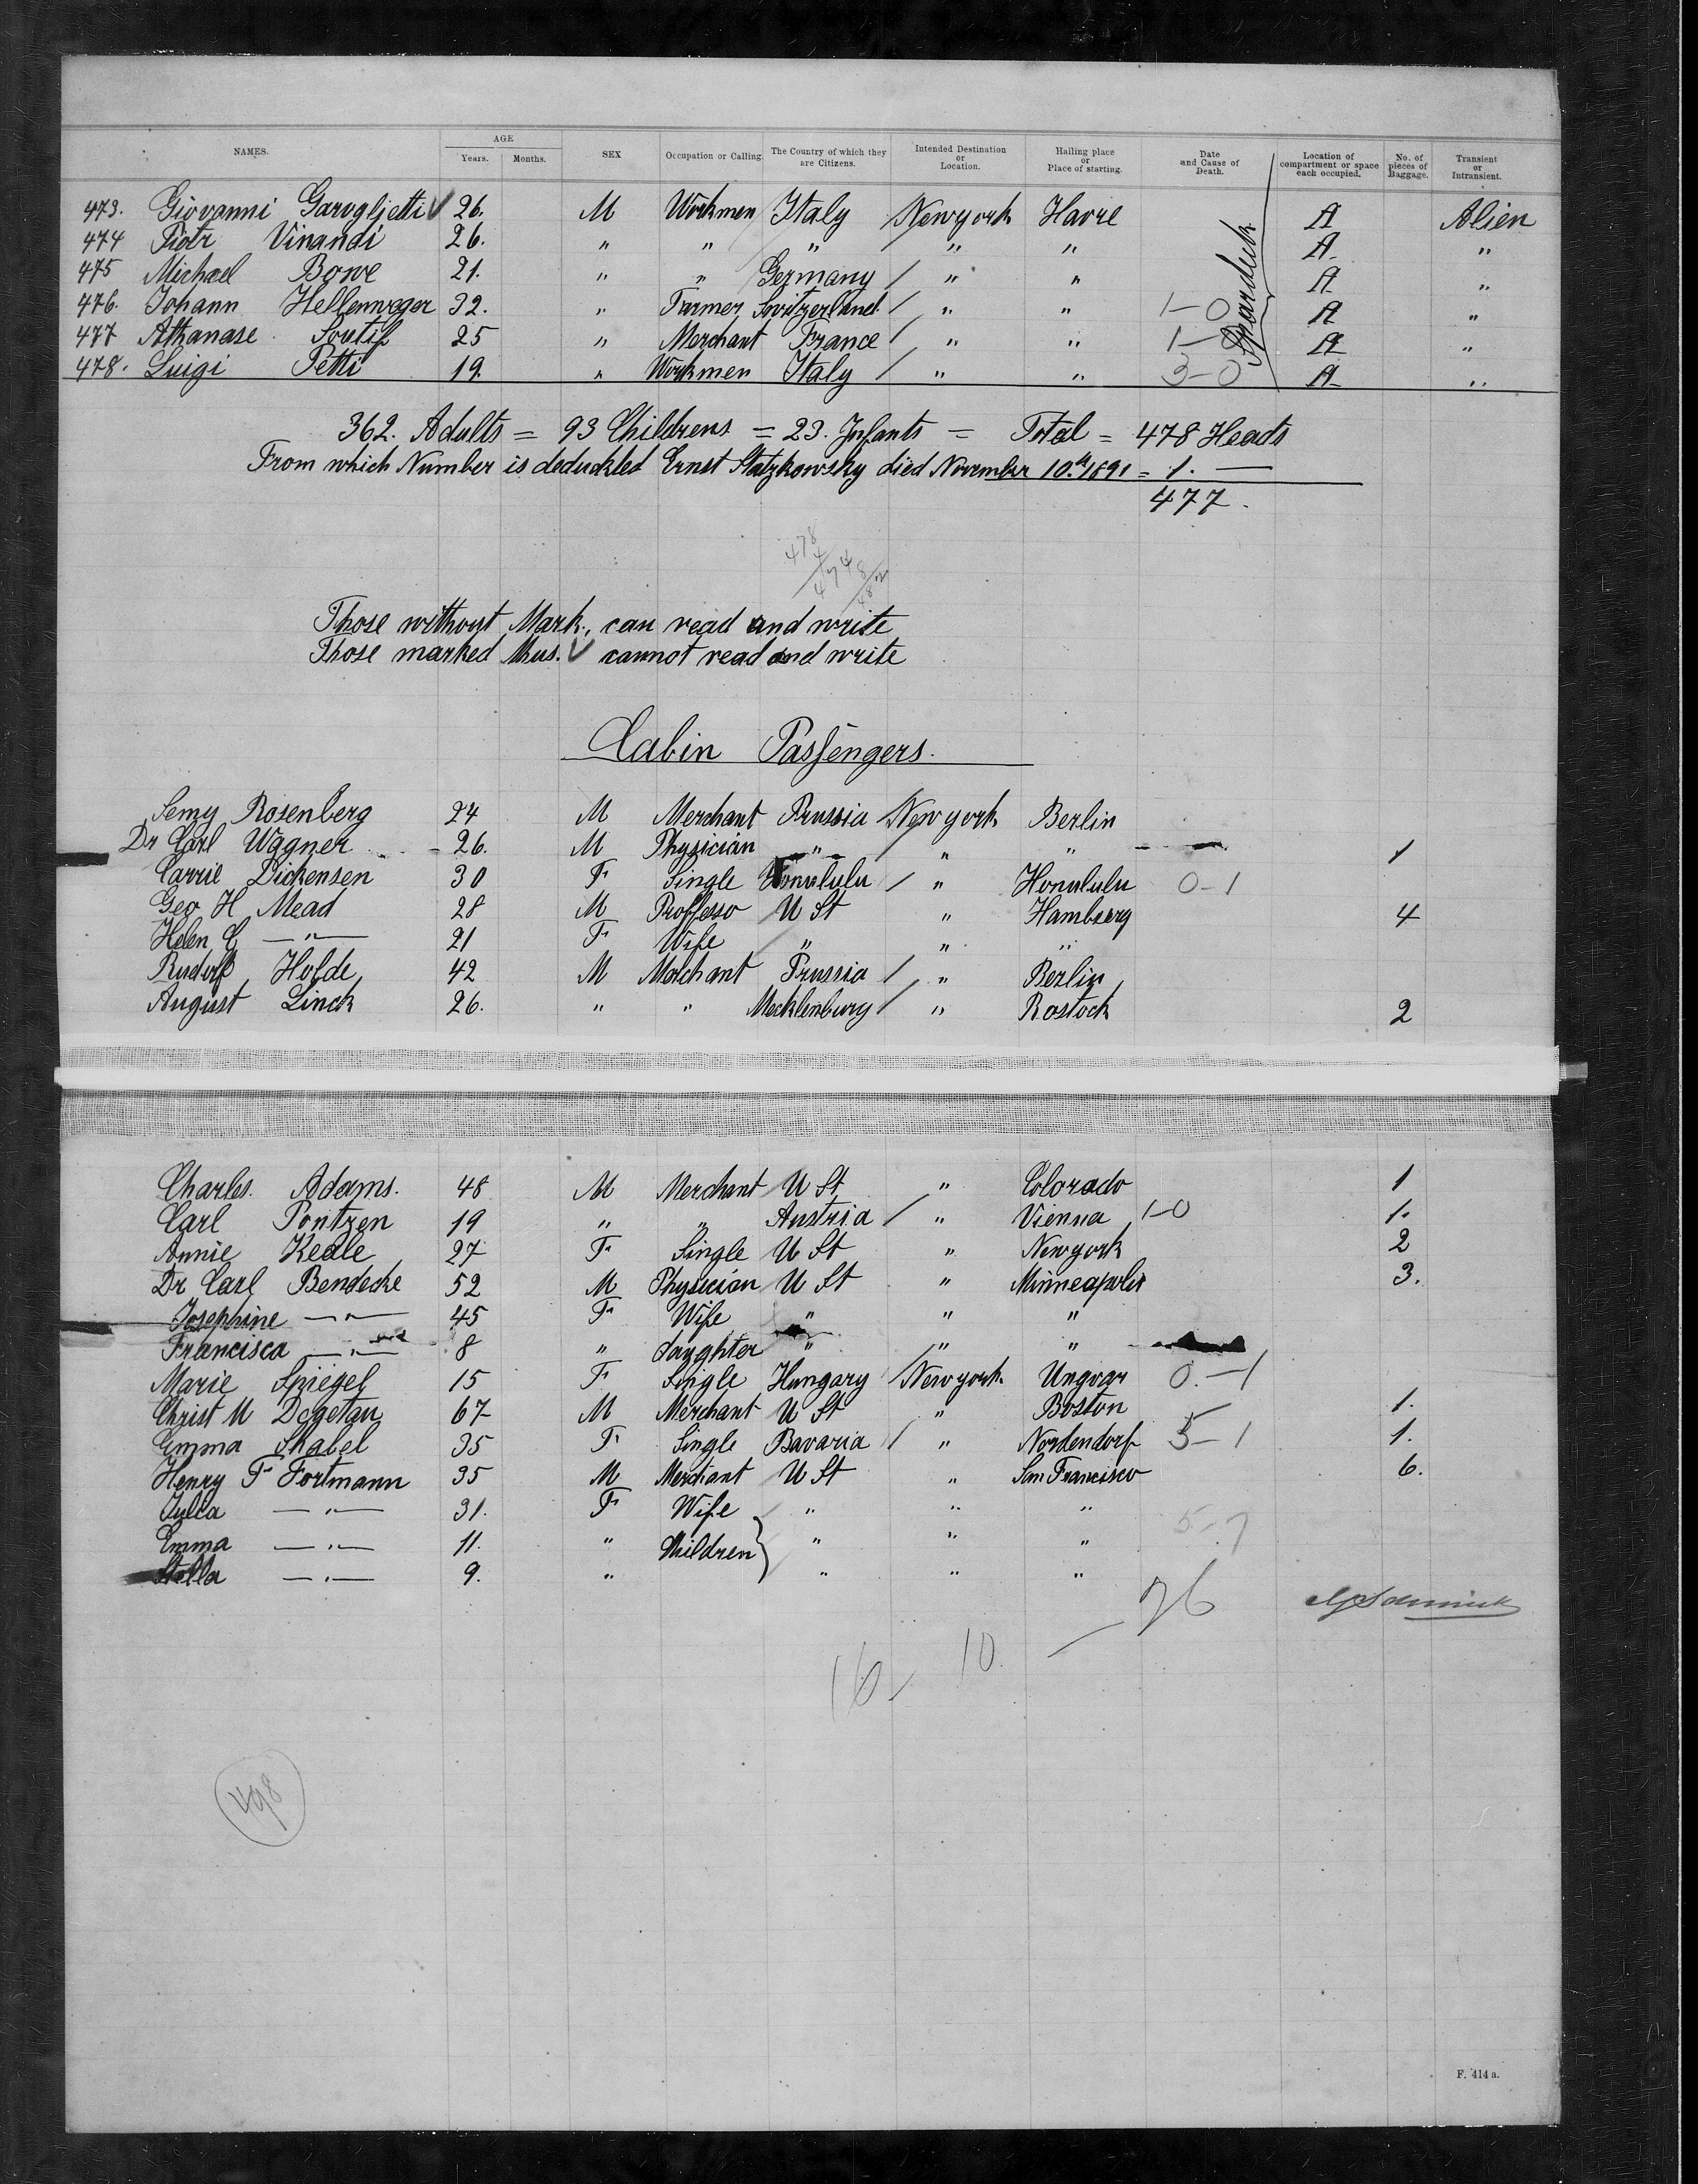 NAMES. AGE Years. Months. SEX Occupation or Calling. The Country of which they are Citizens. Intended Destination or Location. Hailing place or Place of starting. Date and Cause of Death. Location of compartment or space each occupied. No. of pieces of Baggage. Transient or Intransient.
473. Giovanni Garogljetti √ 26. M Workmen Italy Newyork Havre A Alien
474 Piotr Vinandi 26. " " " " " A "
475 Michael Bowe 21. " " Germany / " " A "
476. Johann Hellenweger 32. " Farmer Switzerland / " " 1-0 A "
477 Athanase Soutif 25 " Merchant France / " " A "
478. Luigi Petti 19. " Workmen Italy / " " 3-0 A "
362. Adults = 93 Childrens = 23. Infants = Total = 478 Heads
From which Number is deduckted Ernst Statzkowsky died November 10.th 1891 = 1. —
477.
478
Those without Mark, can read and write
Those marked thus. √ cannot read and write
Cabin Passengers.
Semy Rosenberg 24 M Merchant Prussia / Newyork Berlin
Dr Carl Wagner 26. M Physician " / " " 1
Carrie Dickensen 30 F Single Honolulu / " Honululu 0-1
Geo H Mead 28 M Proffesso U St " Hamburg 4
Helen C — " — 21 F Wife " " "
Rudolf Hofde 42 M Merchant Prussia / " Berlin
August Linck 26. " " Mecklenburg / " Rostock 2
Charles. Adams. 48 M Merchant U St " Colorado 1
Carl Pontzen 19 " " Austria / " Vienna 1-0 1.
Annie Keale 27 F Single U St " Newyork 2
Dr Carl Bendecke 52 M Physician U St " Minneapolis 3.
Josephine — " — 45 F Wife " " "
Francisca — " — 8 " daughter " " "
Marie Spiegel 15 F Single Hungary / Newyork Ungvar 0-1
Christ M Dogetau 67 M Merchant U St " Boston 1.
Emma Skabel 35 F Single Bavaria / " Nordendorf 1.
Henry F Fortmann 35 M Merchant U St " San Francisco 6.
Julia — " — 31. F Wife " " "
Emma — " — 11. " Children } " " "
Stella — " — 9. " " " "
10.
498
F. 414 a.